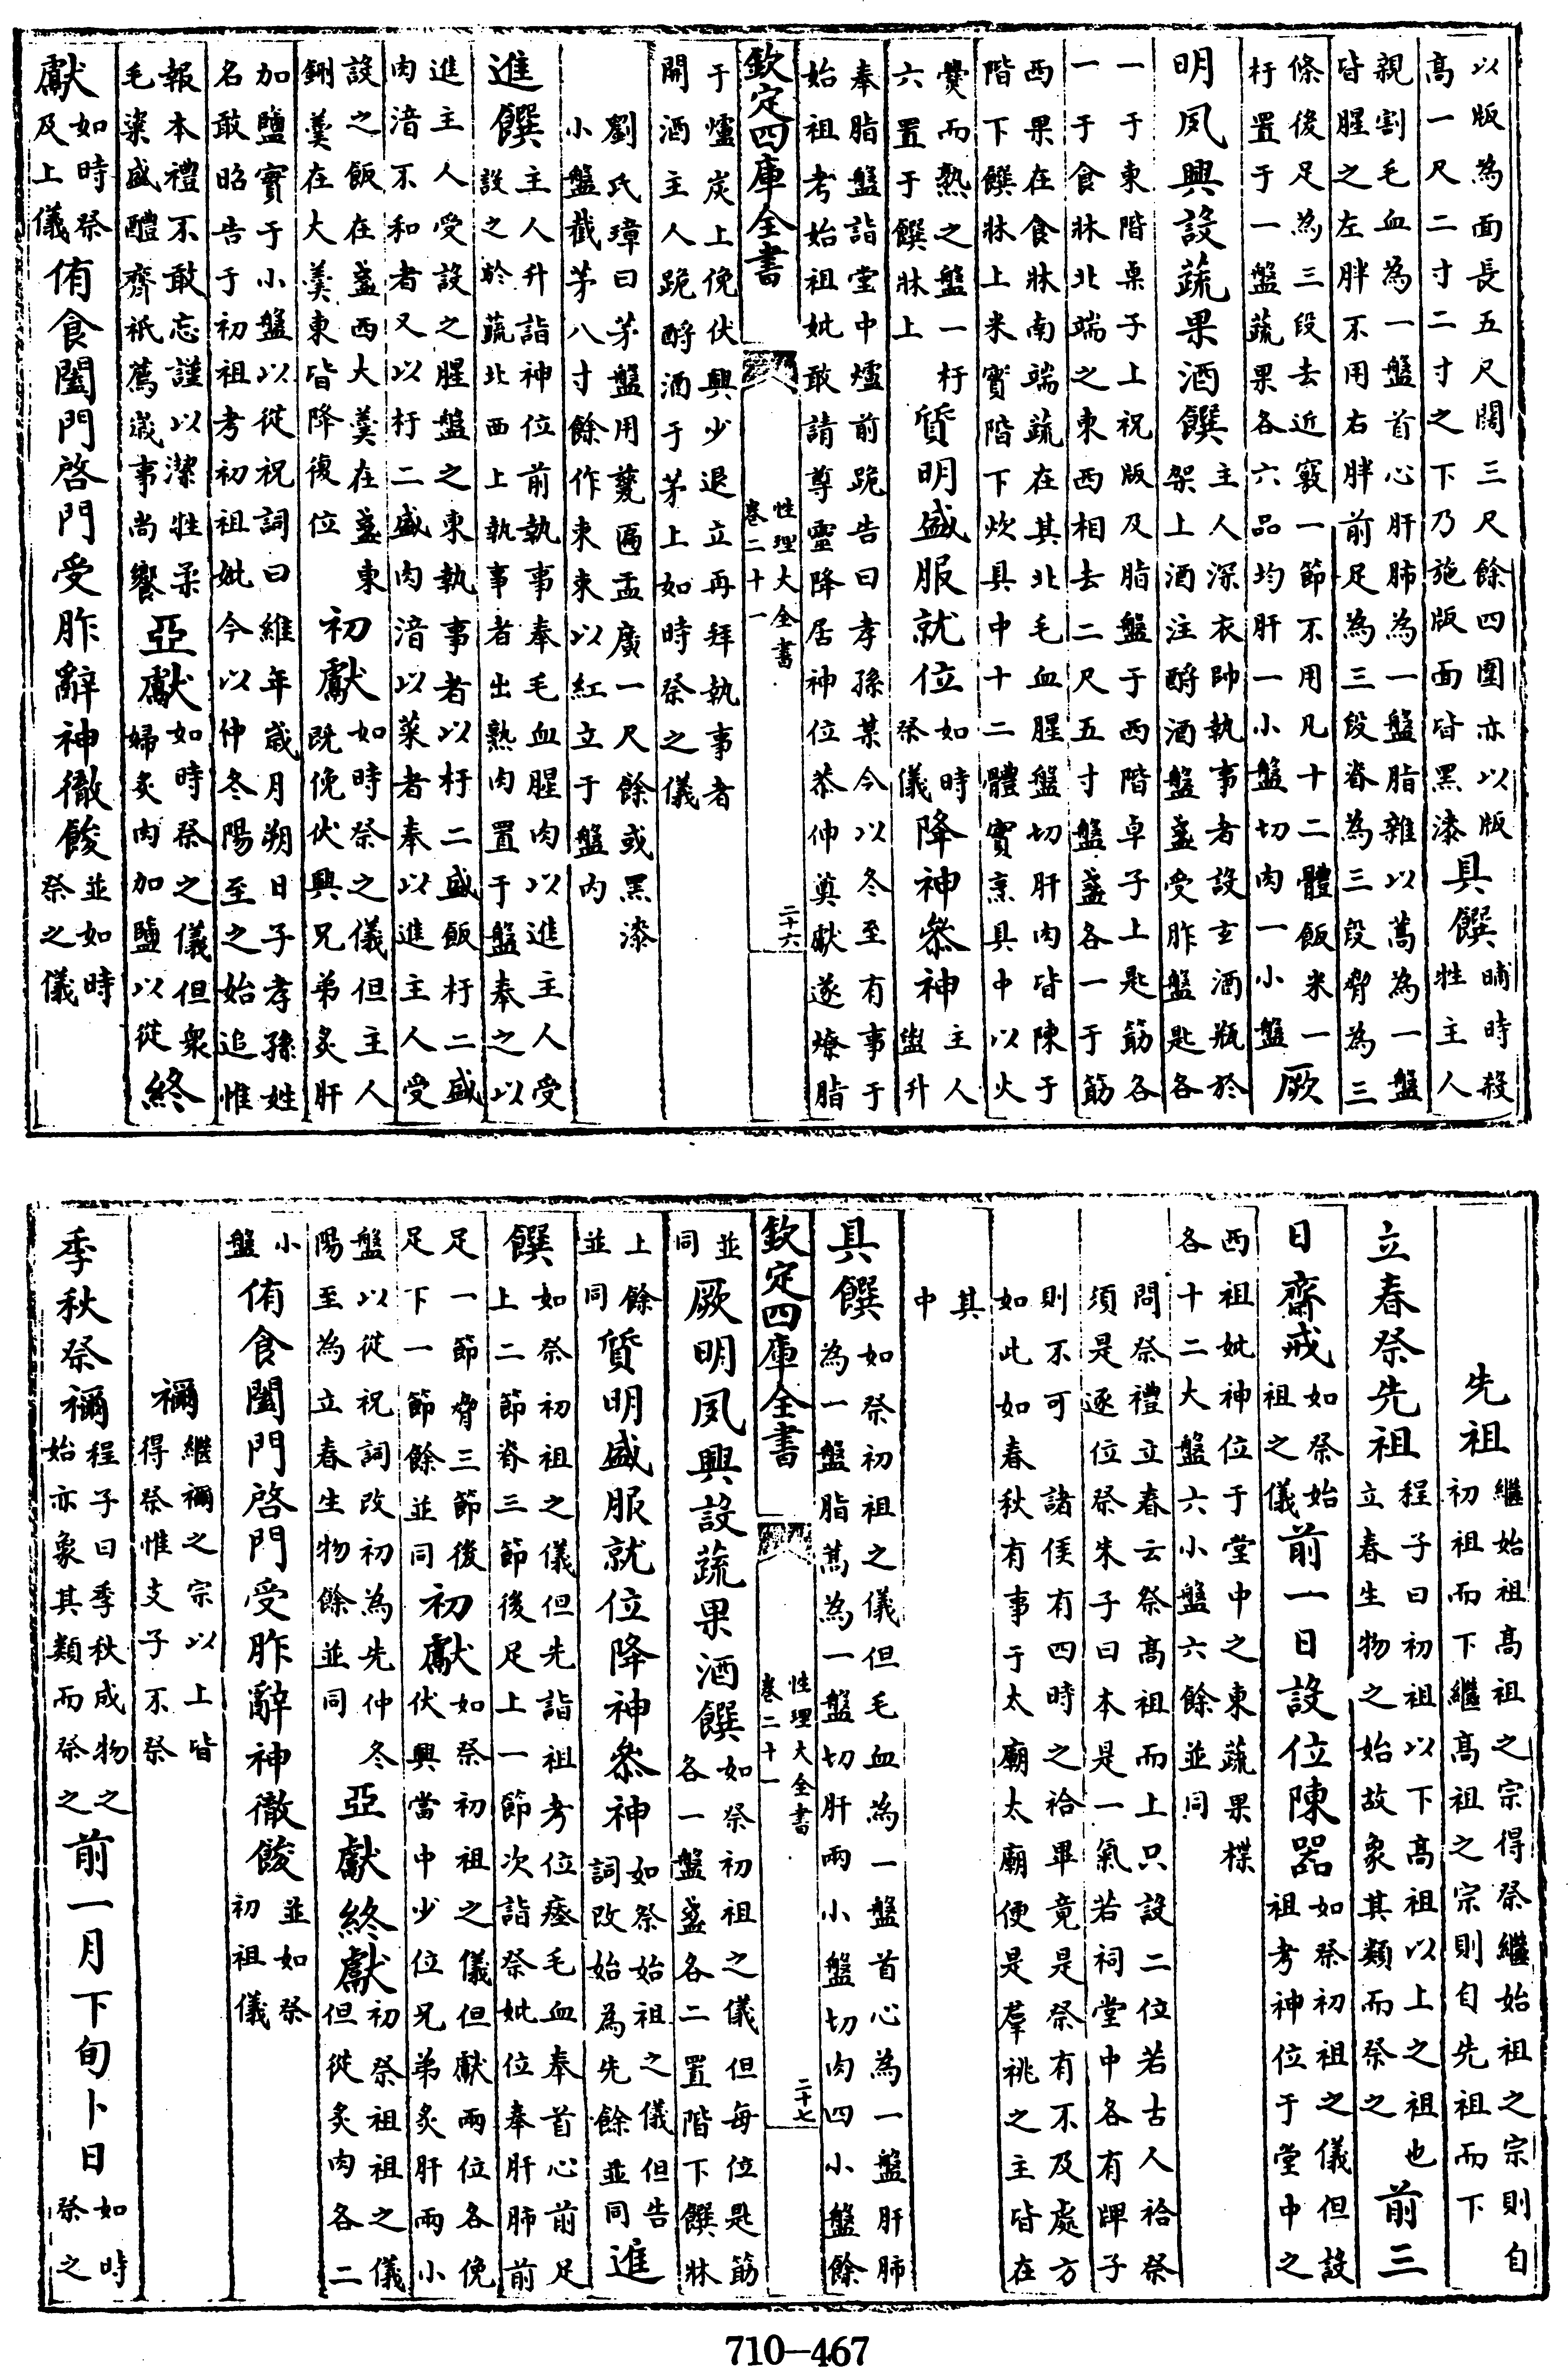 以版為面長五尺闊三尺餘四圍亦以版
髙一尺二寸二寸之下乃施版面皆黑漆
具饌
晡時殺
牲主人
親割毛血為一盤首心肝肺為一盤脂雜以蒿為一盤
皆腥之左胖不用右胖前足為三段脊為三段脅為三
條後足為三段去近竅一節不用凡十二體飯米一
杅置于一盤蔬果各六品均肝一小盤切肉一小盤
厥
明夙興設蔬果酒饌
主人深衣帥執事者設玄酒瓶於
架上酒注酹酒盤盞受胙盤匙各
一于東階桌子上祝版及脂盤于西階卓子上匙筯各
一于食牀北端之東西相去二尺五寸盤盞各一于筯
西果在食牀南端蔬在其北毛血腥盤切肝肉皆陳于
階下饌牀上米實階下炊具中十二體實烹具中以火
爨而熟之盤一杅
六置于饌牀上
質明盛服就位
如時
祭儀
降神叅神
主人
盥升
奉脂盤詣堂中爐前跪告曰孝孫某今以冬至有事于
始祖考始祖妣敢請尊靈降居神位恭伸奠獻遂燎脂
欽定四庫全書
性理大全書
卷二十一
二十六
于爐炭上俛伏興少退立再拜執事者
開酒主人跪酹酒于茅上如時祭之儀
劉氏璋曰茅盤用甆匾盂廣一尺餘或黑漆
小盤截茅八寸餘作束束以紅立于盤内
進饌
主人升詣神位前執事奉毛血腥肉以進主人受
設之於蔬北西上執事者出熟肉置于盤奉之以
進主人受設之腥盤之東執事者以杅二盛飯杅二盛
肉湆不和者又以杅二盛肉湆以菜者奉以進主人受
設之飯在盞西大羹在盞東
鉶羹在大羹東皆降復位
初獻
如時祭之儀但主人
既俛伏興兄弟炙肝
加鹽實于小盤以從祝詞曰維年歲月朔日子孝孫姓
名敢昭告于初祖考初祖妣今以仲冬陽至之始追惟
報本禮不敢忘謹以潔牲柔
毛粢盛醴齊祇薦歲事尚饗
亞獻
如時祭之儀但衆
婦炙肉加鹽以從
終
獻
如時祭
及上儀
侑食闔門啓門受胙辭神徹餕
並如時
祭之儀
先祖
繼始祖髙祖之宗得祭繼始祖之宗則自
初祖而下繼髙祖之宗則自先祖而下
立春祭先祖
程子曰初祖以下髙祖以上之祖也
立春生物之始故象其類而祭之
前三
日齋戒
如祭始
祖之儀
前一日設位陳器
如祭初祖之儀但設
祖考神位于堂中之
西祖妣神位于堂中之東蔬果楪
各十二大盤六小盤六餘並同
問祭禮立春云祭髙祖而上只設二位若古人祫祭
須是逐位祭朱子曰本是一氣若祠堂中各有牌子
則不可 諸侯有四時之祫畢竟是祭有不及處方
如此如春秋有事于太廟太廟便是羣祧之主皆在
其
中
具饌
如祭初祖之儀但毛血為一盤首心為一盤肝肺
為一盤脂蒿為一盤切肝兩小盤切肉四小盤餘
欽定四庫全書
性理大全書
卷二十一
二十七
並
同
厥明夙興設蔬果酒饌
如祭初祖之儀但每位匙筯
各一盤盞各二置階下饌牀
上餘
並同
質明盛服就位降神叅神
如祭始祖之儀但告
詞改始為先餘並同
進
饌
如祭初祖之儀但先詣祖考位瘞毛血奉首心前足
上二節脊三節後足上一節次詣祭妣位奉肝肺前
足一節脅三節後
足下一節餘並同
初獻
如祭初祖之儀但獻兩位各俛
伏興當中少位兄弟炙肝兩小
盤以從祝詞改初為先仲冬
陽至為立春生物餘並同
亞獻終獻
初祭祖之儀
但從炙肉各二
小
盤
侑食闔門啓門受胙辭神徹餕
並如祭
初祖儀
禰
繼禰之宗以上皆
得祭惟支子不祭
季秋祭禰
程子曰季秋成物之
始亦象其類而祭之
前一月下旬卜日
如時
祭之
710—467